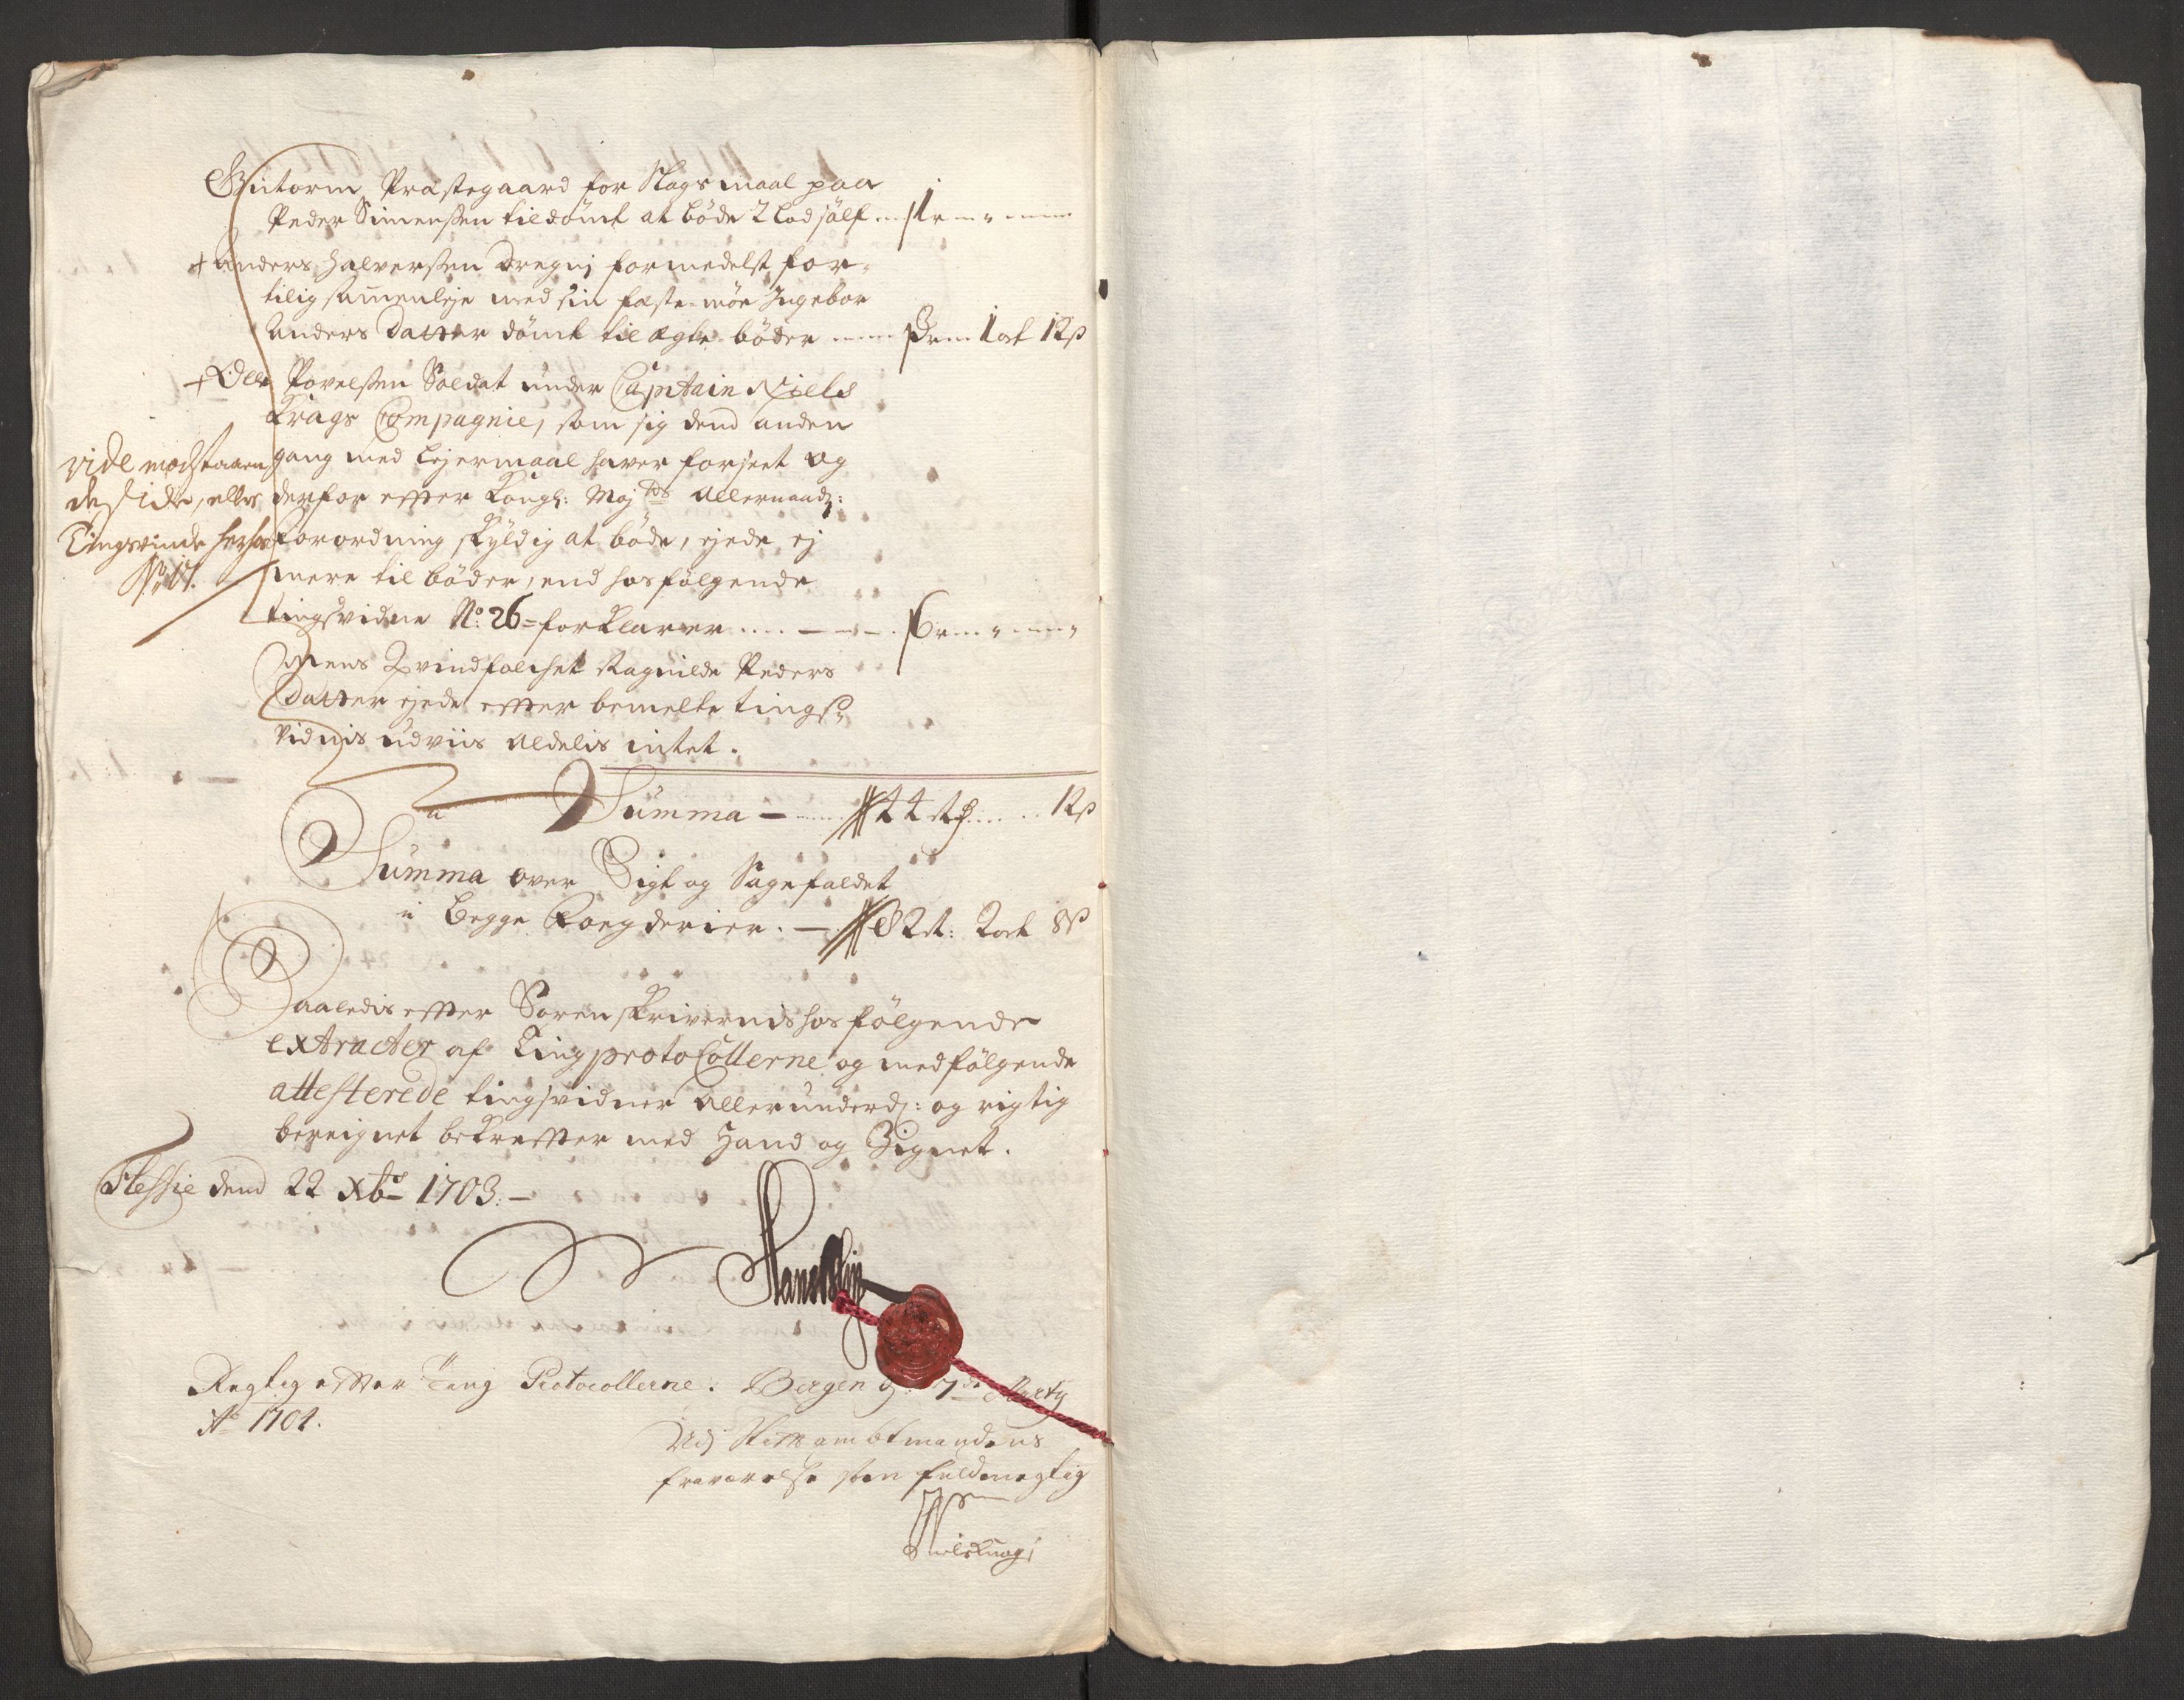 Guttorm Præstegaard for Slagsmaal paa
Peder Simensen tildömt at böde 2 Lod sölf 1 r
+ Anders Halversen Dregni formedelst for-
tilig sammenleje med sin fæste-möe Ingebor
Anders Datter dömt til ægte böder 3 r 1 ort 12 ß
+ Ole Povelsen Soldat under Captain Niels
Krags Compagnie, som sig dend anden
gang med Lejermaal haver forseet og
derfor efter Kongl: Maj:ts Allernaad:
forordning skyldig at böde, ejede ej
mere til böder, end hosfölgende
tingsvidne No: 26 = forklarer 6 r
Mens Qvindfolchet Ragnilde Peders
Datter ejede efter bemelte tings-
vidnis udviis Aldelis intet.
vide modstaaen
de side, eller
Tingsvinde herhos
No 17.
Summa - 44 r 12 ß
Summa over Sigt og Sagefaldet
i Begge Fogderier. - 82 r: 2 ort 8 ß
Saaledis efter Sorenskrivernis hosfölgende
extracter af Tingprotocollerne og medfölgende
attesterede tingsvidner Allerunderd: og rigtig
bereignet bekrefter med Hand og Signet.
Flessie dend 22 Xbr 1703. -
Rigtig efter Ting Protocollerne. Bergen d. 7de Marty
Ao 1704.
Udj Stiftambtmandens
fraværelse som fuldmegtig